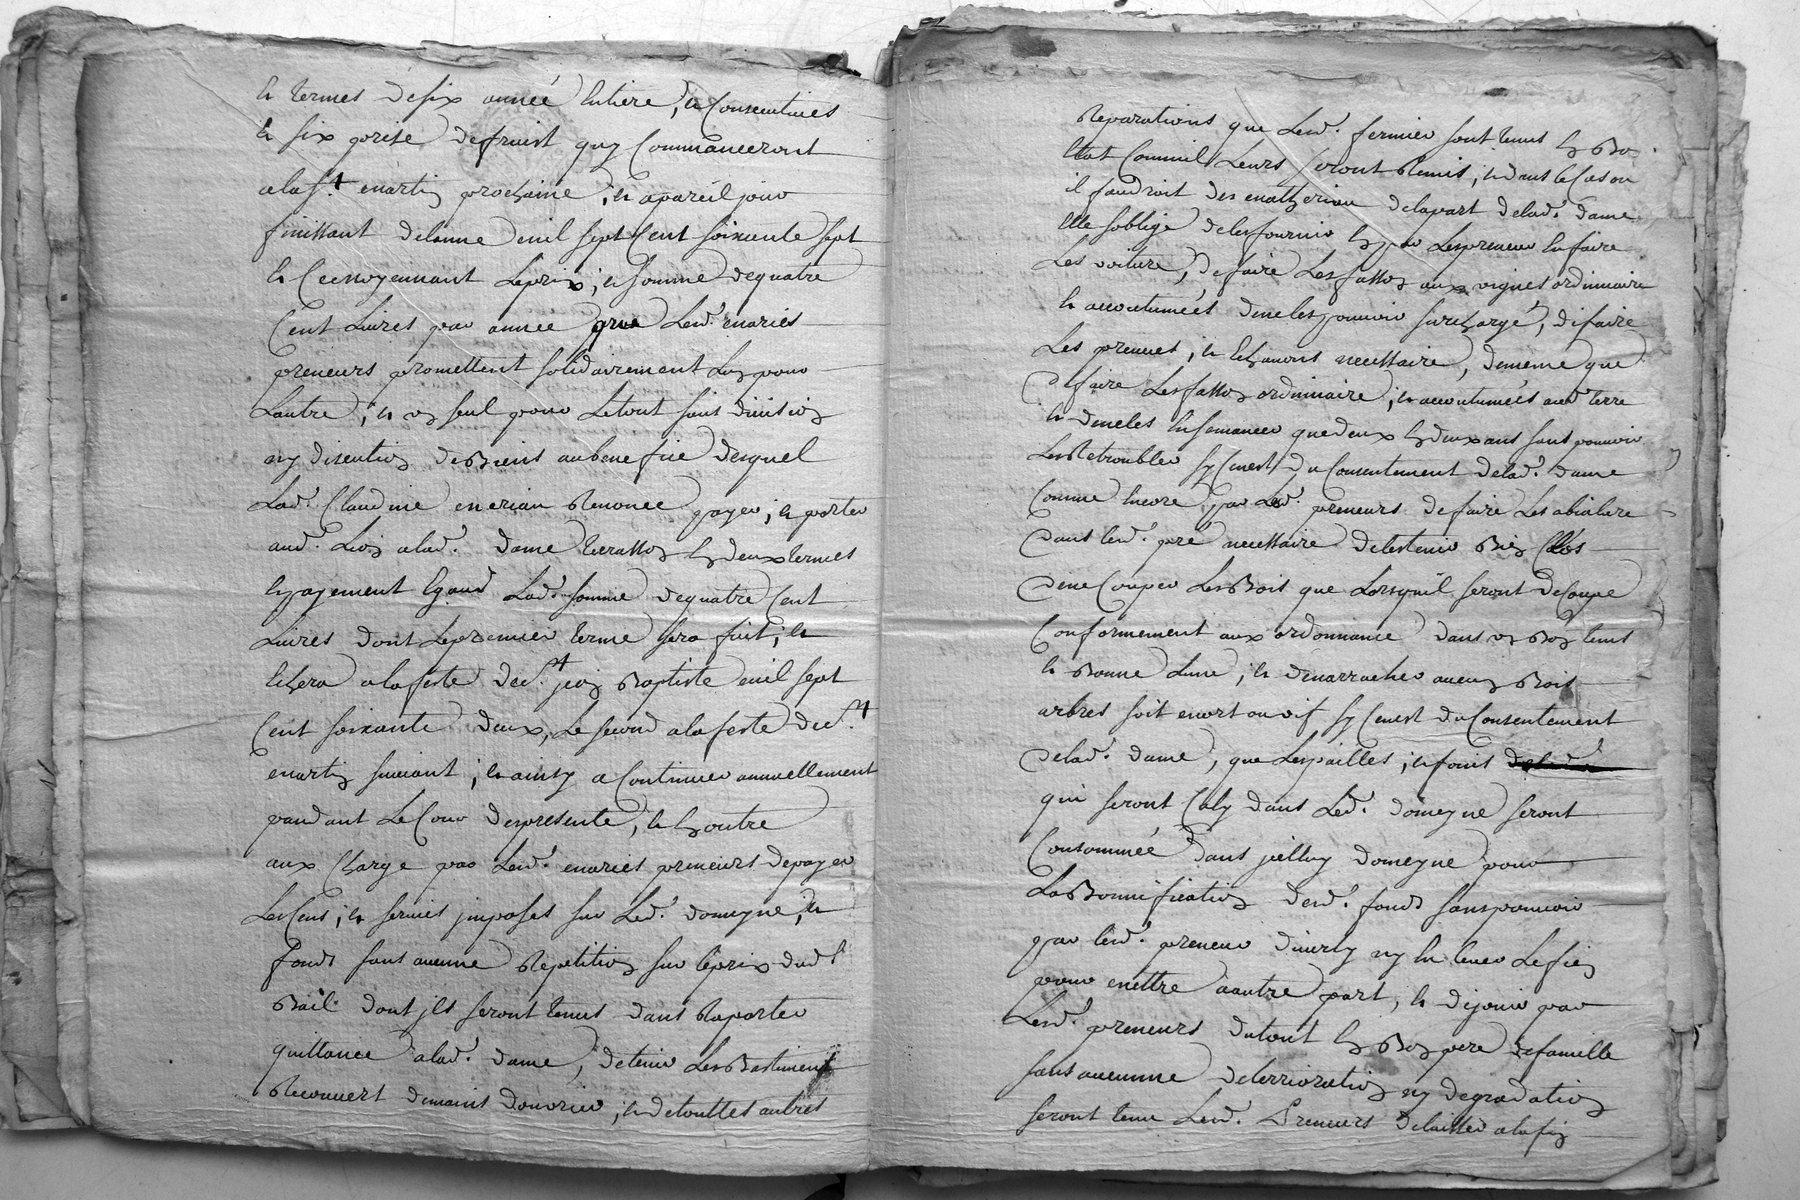 et termes desix anneé Entiere, et Consecutives
et six prise defruist quy Commanceront
alas.t martin prochaine, et apareil jour
finissant delanne mil sept Cent soixcente sept
et Cemoyennant Leprix, et somme dequatre
Cent Livres par année que Lesd. mariés
preneurs promettent solidairement Lun pour
Lautre, et un seul pour Letout sans division
ny discution deBiens aubenefice desquel
Lad. Claudine merian Renonce payer, et porter
aud. Lieu alad. dame terrasson En deux termes
Enpayement Egaux Lad. somme dequatre Cent
Livres dont Lepremier terme sera fait, et
Echera alafeste des.t jean Baptiste mil sept
Cent soixante deux, Le second alafeste des.t
martin suivant, et ainsy aContinuer annuellement
pandant LeCour despresente, et En outre
aux Charge par Lesd. mariés preneurs depayer
LesCens, et servis jmposes sur Led. domeyne, et
fonds sans aucune Repetition sur leprix dud.t
Bail dont jls seront tenus dans Raporter
quittance alad. dame, detenir Les Bastiment
Recouvert demains douvrier, et detouttes autres
Reparations que Lesd. fermier sont tenus En Bon
Etat Comm'il Leurs seront Remis, et dans leCas ou
il faudroit des matheriau delapart delad. dame
Elle soblige delesfournir En par Lespreneur En faire
Les voiture, defaire Lesfasson aux vignes ordinnaire
et accoutumées denelespouvoir surcharge, defaire
Les preuves, et Echamons necessaire, demême que
defaire Lesfasson ordinnaire, et accoutumées aud. terre
et deneles Ensemancer quedeux En deux ans sans pouvoir
LesRetroubler sy Cenest duConsentement delad. dame
Comme Encore par Lesd. preneurs defaire Les abialiere
dans Led. pré necessaire delestenir Bien Clos
dene Couper LesBois que Lorsquil seront deCoupe
Conformement aux ordonnance dans un Bon tems
et Bonne Lune, et denarracher aucun Bois
arbres soit mort ou vif sy Cenest duConsentement
delad. dame, que Lespailles, et foins
qui seront Ceuly dans Led. domeyne seront
Consommée dans jcelluy domeyne pour
LaBonnification desd. fonds sanspouvoir
par lesd. preneur diverty ny En lever Lefien
pour mettre aautre part, et dejouir par
Lesd. preneurs dutout En Bon pere defamille
sans aucunne deterrioration ny degradation
seront tenu Lesd. Preneurs delaisser alafin